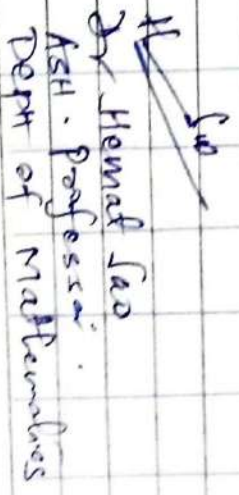 Dr Hemat Sao
Asst. Professor.
Deptt of Mathematics